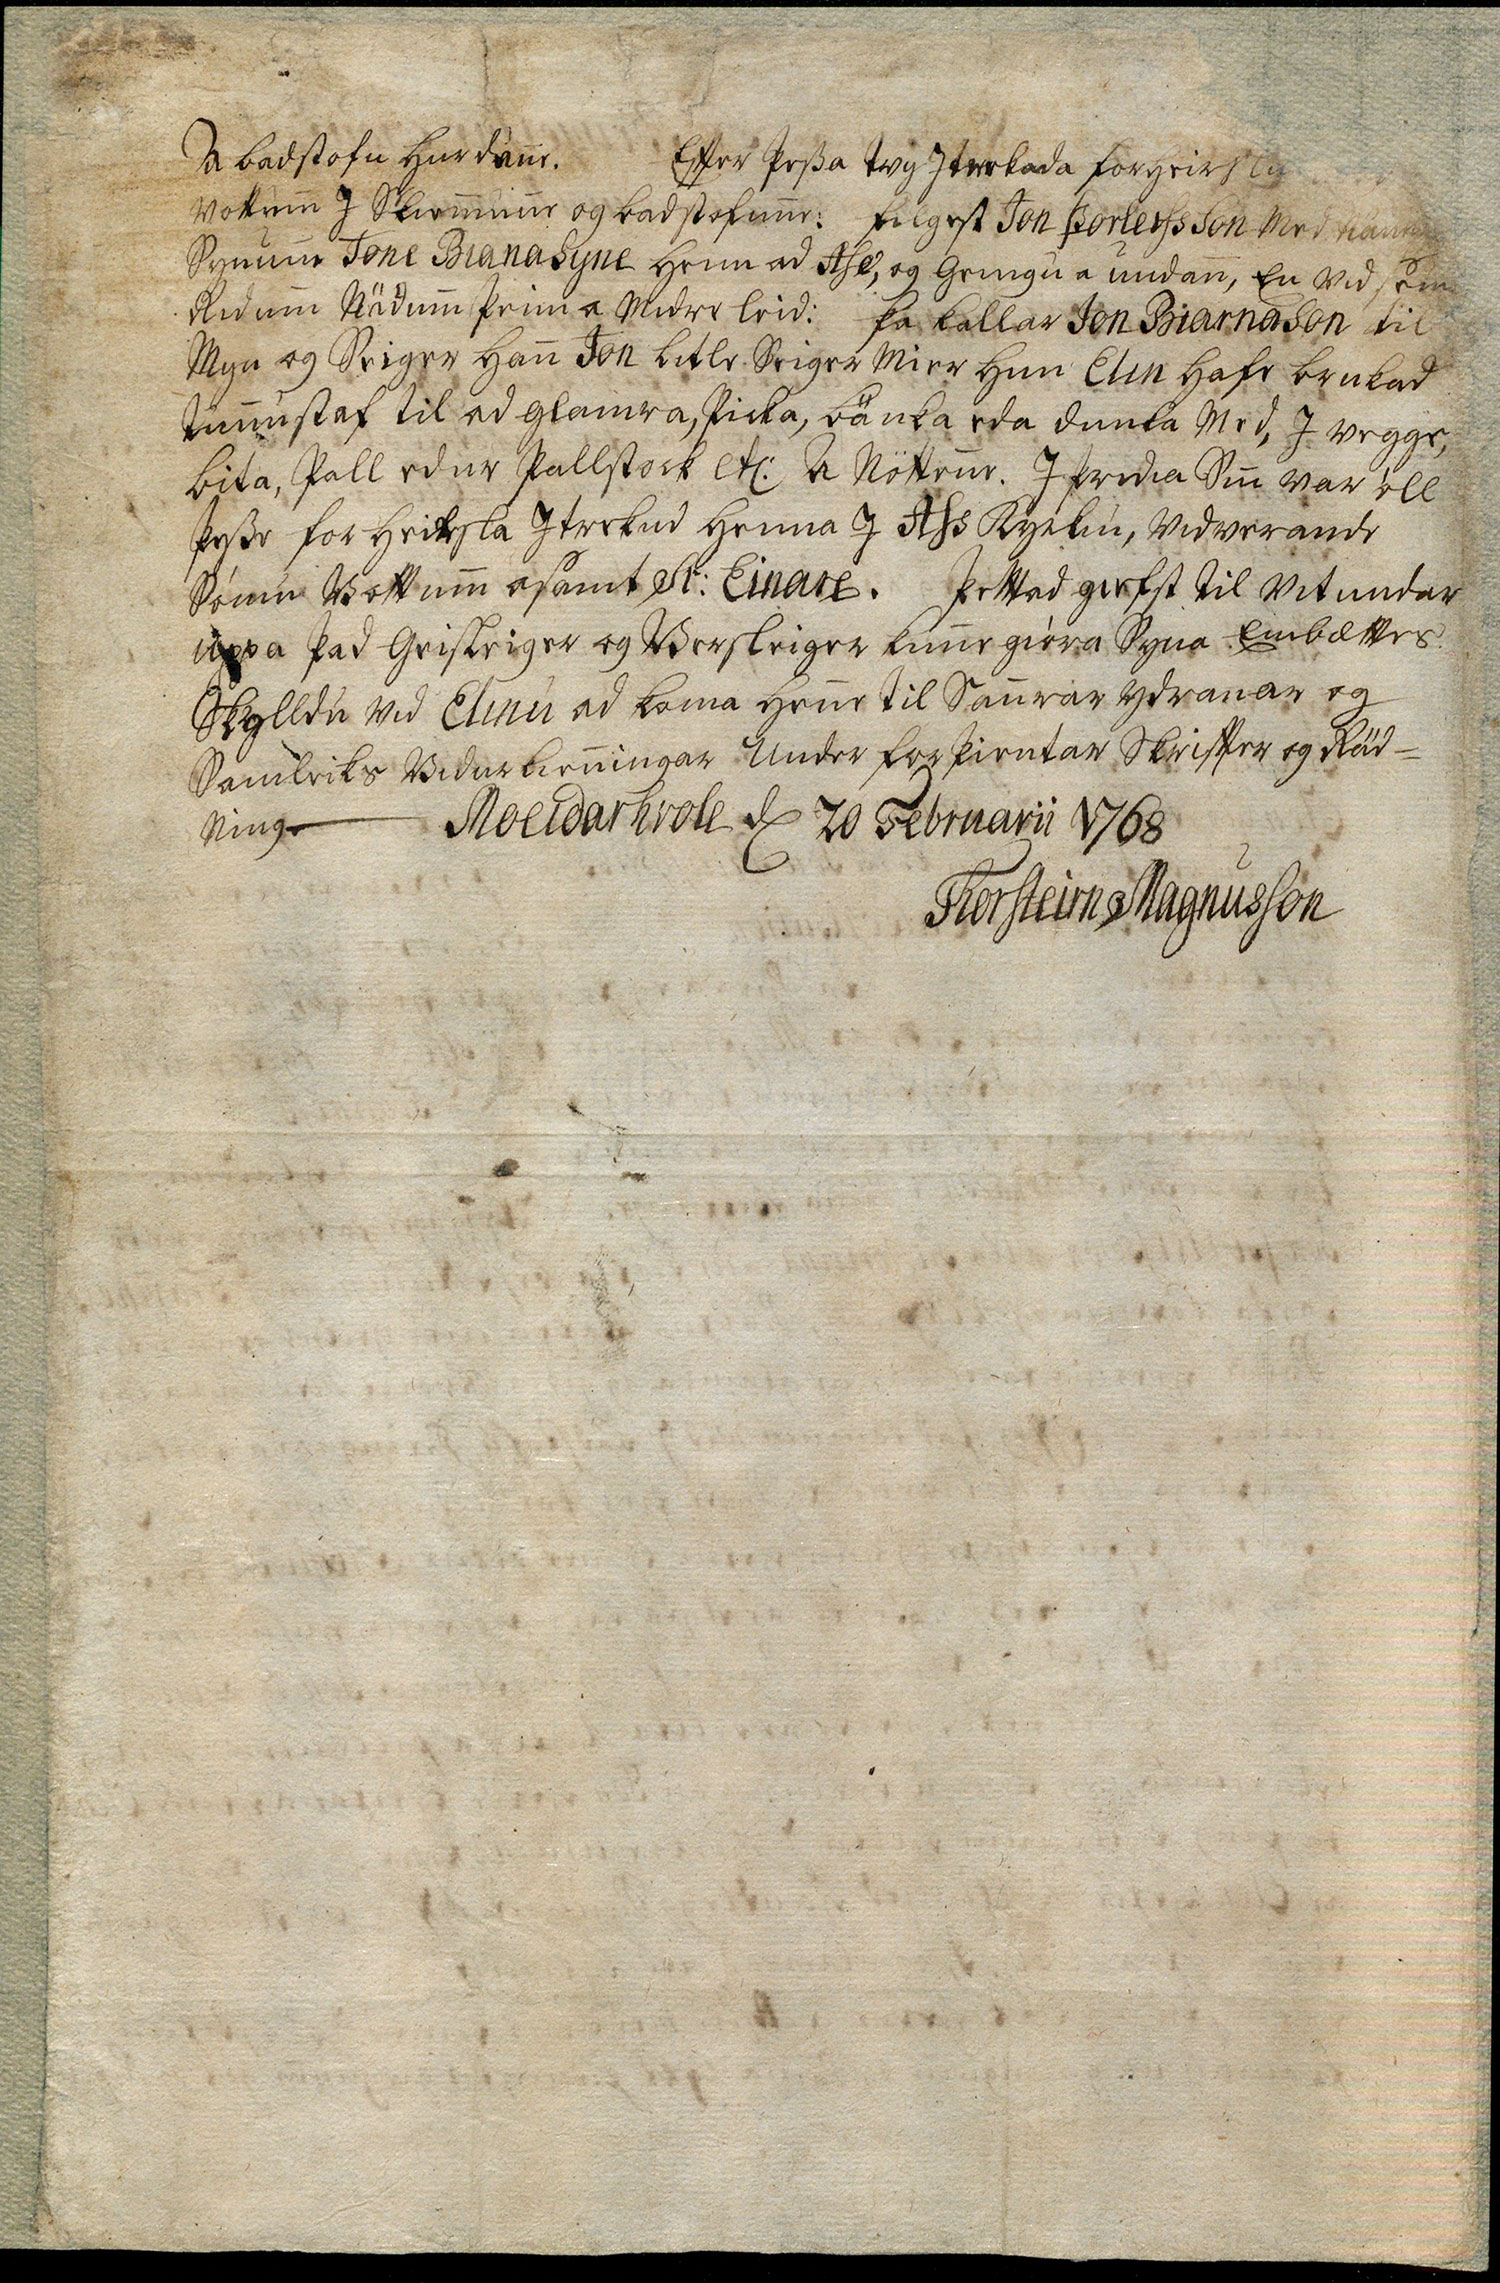 A badstofu hurdänne. Efter þeßa tvy Jtrekada forheirslu
vottum J Skemmune og badstofunne: filgest Jon Þorleifsson Med
Synum Jone Bianasyne heim ad Ase, og Geingu a undann, En vid sem
Ridum Nädum þeim a Midre leid: þa kallar Jon Biarnason til
Myn og Seiger hann Jon litle Seiger Mier hun Elin hafe brukad
tunnustaf til ad glamra, Picka, bänka eda dunka Med, J vegge,
bita, Pall edur Pallstock etc: A Nöttenne. J þridia Sin var öll
þeße forheirsla Jtrekud heima J Ass Kyrkiu, vidverande
Sömu Vottum asamt Sr: Einare. Þettad giefst til vitundar
uppa þad Geistleiger og Verslleiger kunne giöra Syna Embættes
Skylldu vid Elinu ad koma henne til Sannrar ydranar og
Sannleiks Vidurkienningar Under forþientar Skrifter og Räd-
ning. Moeidarhvole d 20 Februarii 1768
Thorsteirn Magnusson